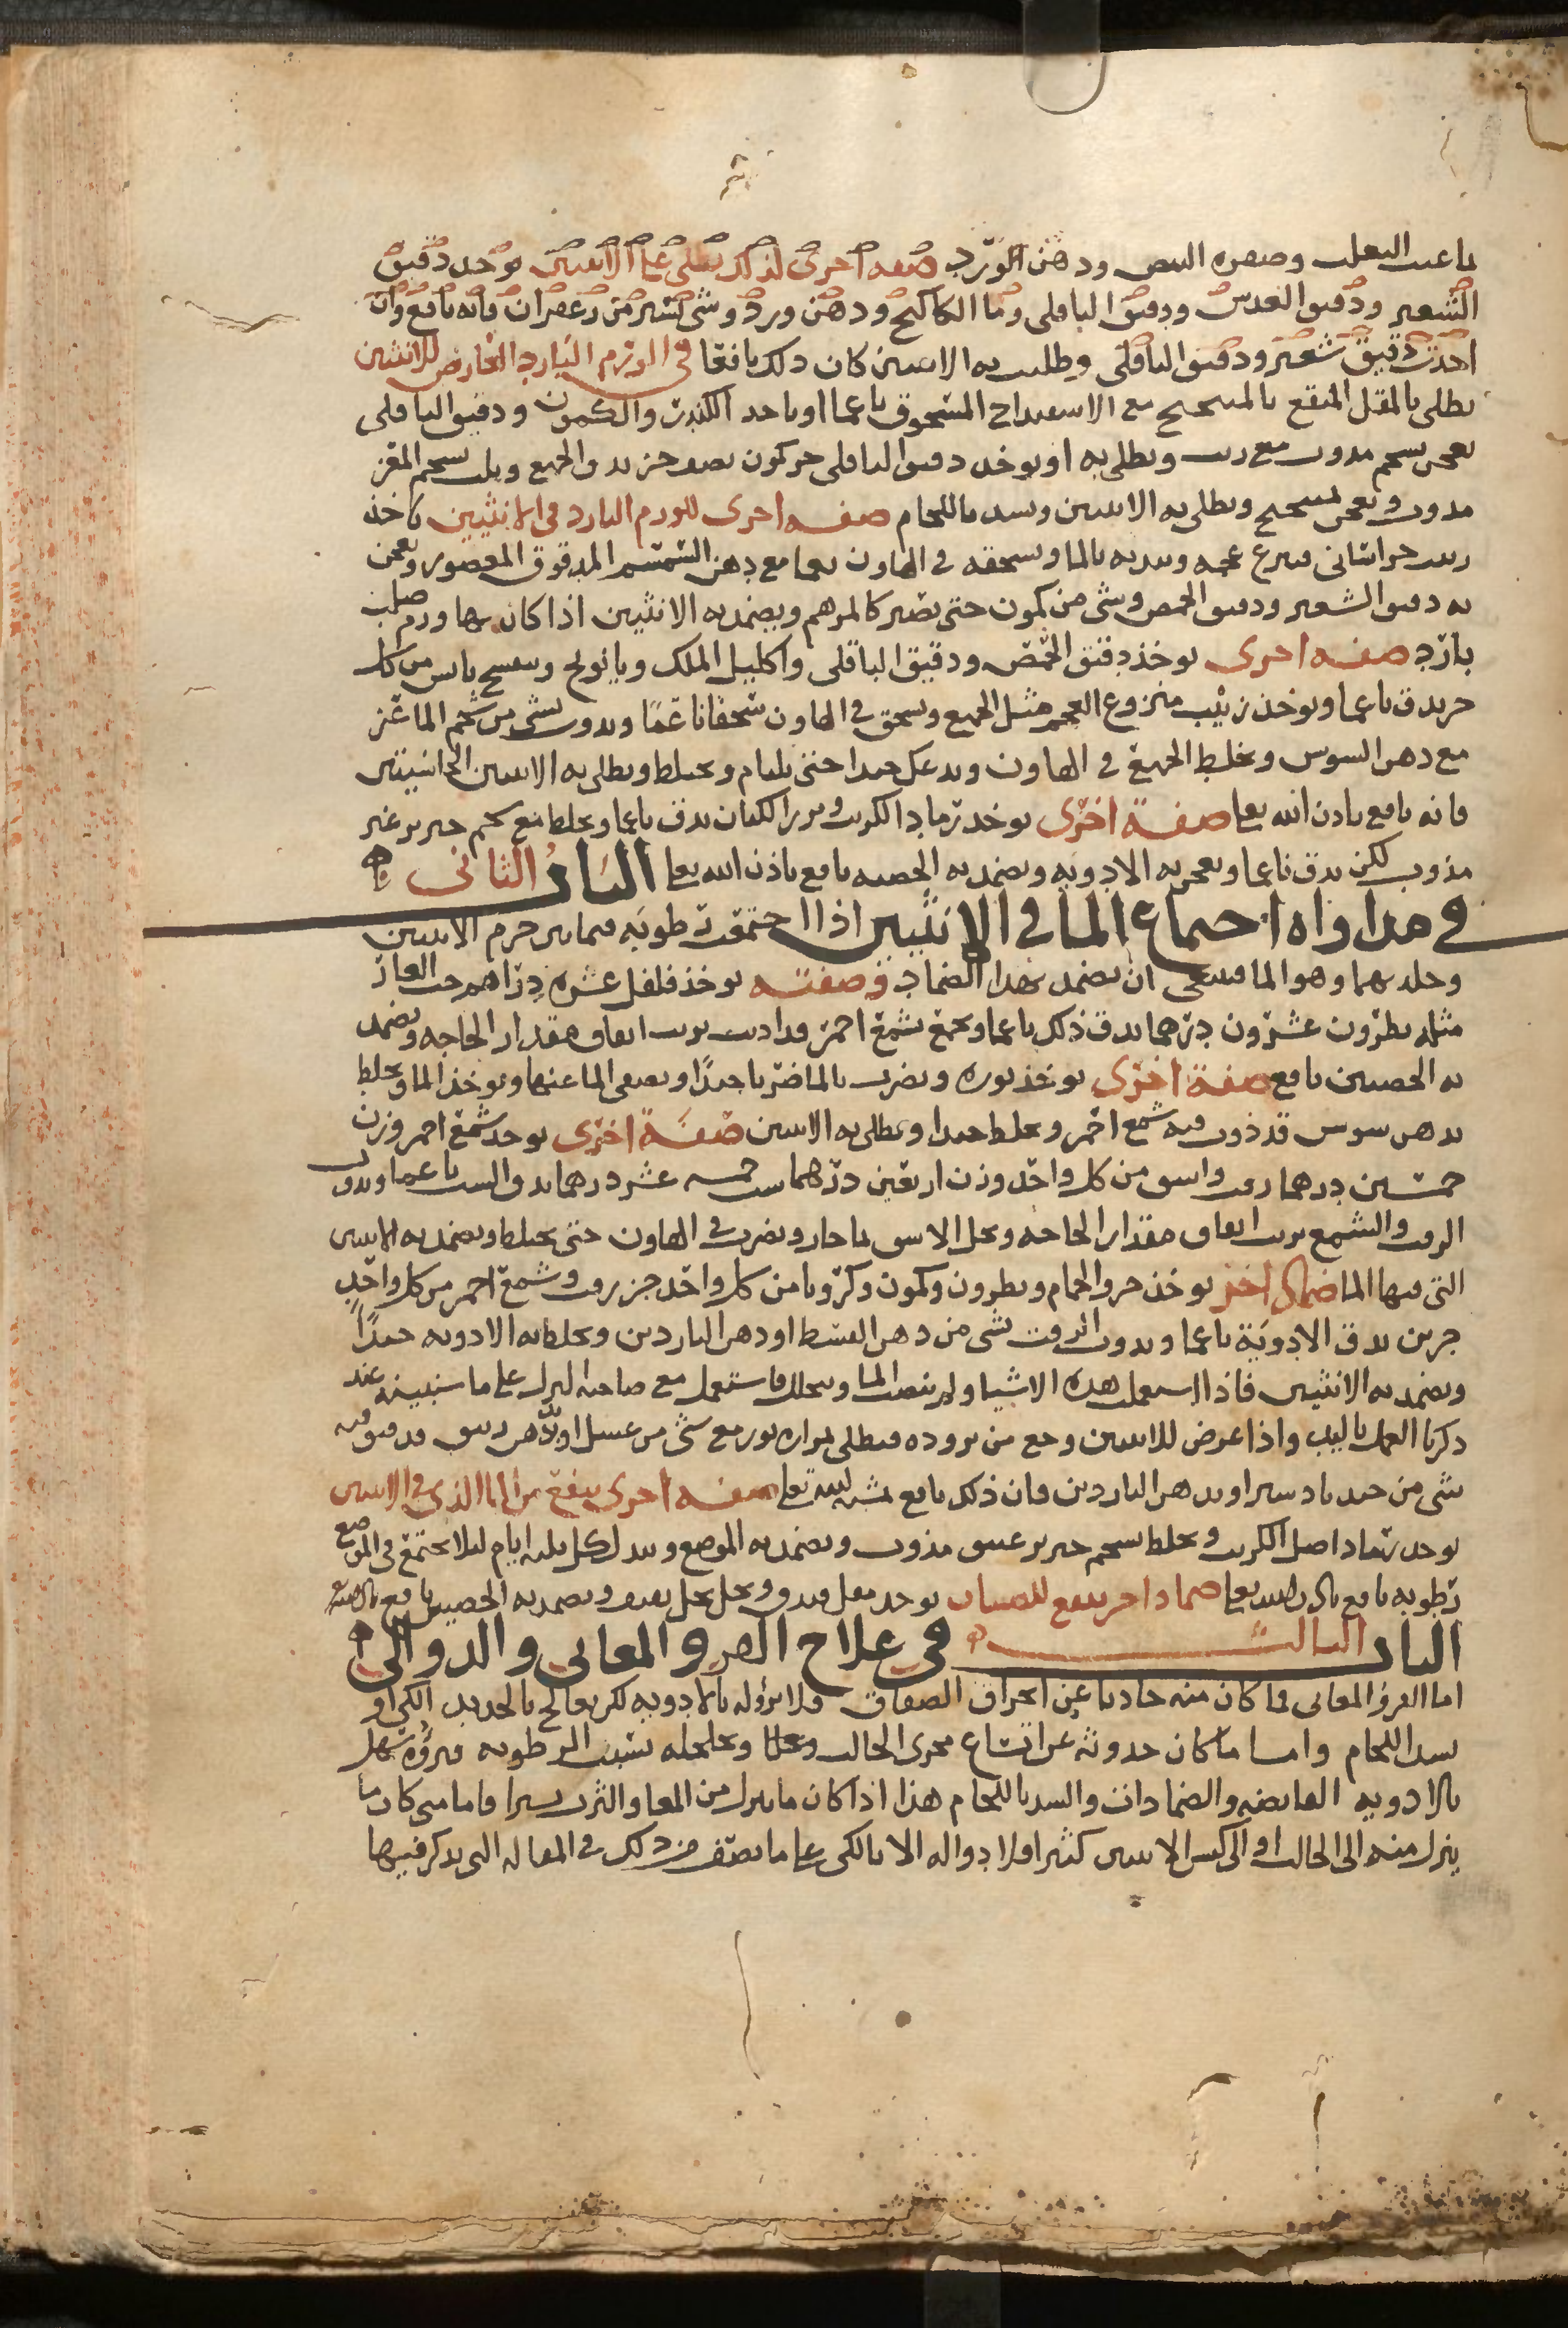 ما عنب الثعلب وصفره البيض ودهن الورد صفه اخرى لذلك تطلى على الانثيين يوخد دقيق
الشعير ودقيق العدس ودقيق الباقلى وما الكاكنج ودهن ورد وشى يسير من زعفران فانه نافع وان
اخذت دقيق شعير ودقيق الباقلى وطليت به الانثيين كان ذلك نافعا فى الورم البارد العارض للانثيين
يطلى بالمقل المنقع بالميبختج مع الاسفيداج المسحوق ناعما او ياخد الكندر والكمون ودقيق الباقلى
يعجن بشحم مذوب مع زيت ويطلى به او يوخد دقيق الباقلى جز كمون نصف جز يدق الجميع ويلت بشحم المعز
مذوب ويعجن بميبختج ويطلى به الانثيين ويشد باللجام صفه اخرى للورم البارد فى الانثيين تاخذ
زبيب خراسانى فينزع عجمه ويندبه بالما ويسحقه فى الهاون نعما مع دهن السمسم المدقوق المعصور ويعجن
به دقيق الشعير ودقيق الحمص وشى من كمون حتى يصير كالمرهم ويضمد به الانثيين اذا كان بها ورم صلب
بارد صفه اخرى يوخذ دقيق الحمص ودقيق الباقلى واكليل الملك وبابونج وبنفسج يابس من كل
جز يدق ناعما ويوخذ زبيب منزوع العجم مثل الجميع ويسحق فى الهاون سحقا ناعما ويذوب بشى من شحم الماعز
مع دهن السوس ويخلط الجميع فى الهاون ويدعك جيدا حتى يلتام ويختلط ويطلى به الانثيين الجاسيتين
فانه نافع باذن الله تعا صفة اخرى يوخد رماد الكرنب وبزر الكتان يدق ناعما ويخلط مع شحم خنزير غير
مذوب لكن يدق ناعما ويعجن به الادويه ويضمد به الخصيه نافع باذن الله تعا الباب الثانى
فى مداواه اجتماع الما فى الانثيين اذا اجتمعت رطوبه فيما بين جرم الانثيين
وجلدبهما وهو الما فينبغى ان يضمد بهدا الضماد وصفته يوخذ فلفل عشره دراهم حب الغار
مثله نطرون عشرون درهما يدق ذلك ناعما ويجمع بشمع احمر قد اديب بزيت انفاق مقدار الحاجه ويضمد
به الخصيين نافع صفة اخرى يوخذ نوره ويضرب بالما ضربا جيدا ويصفى الما عنها ويوخذ الما ويخلط
بدهن سوس قد ذوب فيه شمع احمر ويخلط جيدا ويطلى به الانثيين صفة اخرى يوخد شمع احمر وزن
خمسين درهما زفت واشق من كل واحد وزن اربعين درهما شب خمسه عشر درهما يدق الشب ناعما ويذوب
الزفت والشمع بزيت انفاق مقدار الحاجه ويحل الاشق بما حار ويضرب فى الهاون حتى يختلط ويضمد به الانثيين
التى فيها الما ضماد اخر يوخذ خرو الحمام ونطرون وكمون وكرويا من كل واحد جز زفت وشمع احمر من كل واحد
جزين يدق الادوية ناعما ويذوب الزفت بشى من دهن القسط او دهن الناردين ويخلط به الادويه جيدا
ويضمد به الانثيين فاذا استعملت هده الاشيا ولم ينصب الما ويتحلل فاستعمل مع صاحبه البزل على ما سنبينه عند
ذكرنا العمل باليد واذا عرض للانثيين وجع من بروده فيطلى بمراره ثور مع شى من عسل او بدهن زنبق قد فتق فيه
شى من جند بادستر او بدهن الناردين فان ذلك نافع بمشيه الله تعا صفه اخرى ينفع من الما الذى فى الانثيين
يوخد رماد اصل الكرنب ويخلط بشحم خنزير عتيق مذوب ويضمد به الموضع ويبدل كل ثلثه ايام ليلا يجتمع فى الموضع
رطوبه نافع باذن الله تعا ضماد اخر ينفع للصبيان يوخد مقل فيدق ويحل بخل ثقيف ويضمد به الخصيين نافع باذن الله
الباب الثالث فى علاج القرو المعائى والدوالى
اما القرو المعائى فما كان منه حادثا عن انخراق الصفاق فلا برؤ له بالادويه لكن يعالج بالحديد الكى او
بشد اللجام واما ما كان حدوثه عن اتساع مجرى الحالب وتخلخله بسبب الرطوبه فبرؤه سهل
بالادويه القابضه والضمادات والشد باللجام هذا اذا كان ما ينزل من المعا والثرب يسيرا فاما متى كان ما
ينزل منه الى الحالب او الى كيس الانثيين كثيرا فلا دوا له الا بالكى على ما نصف من ذلك فى المقاله التى نذكر فيها